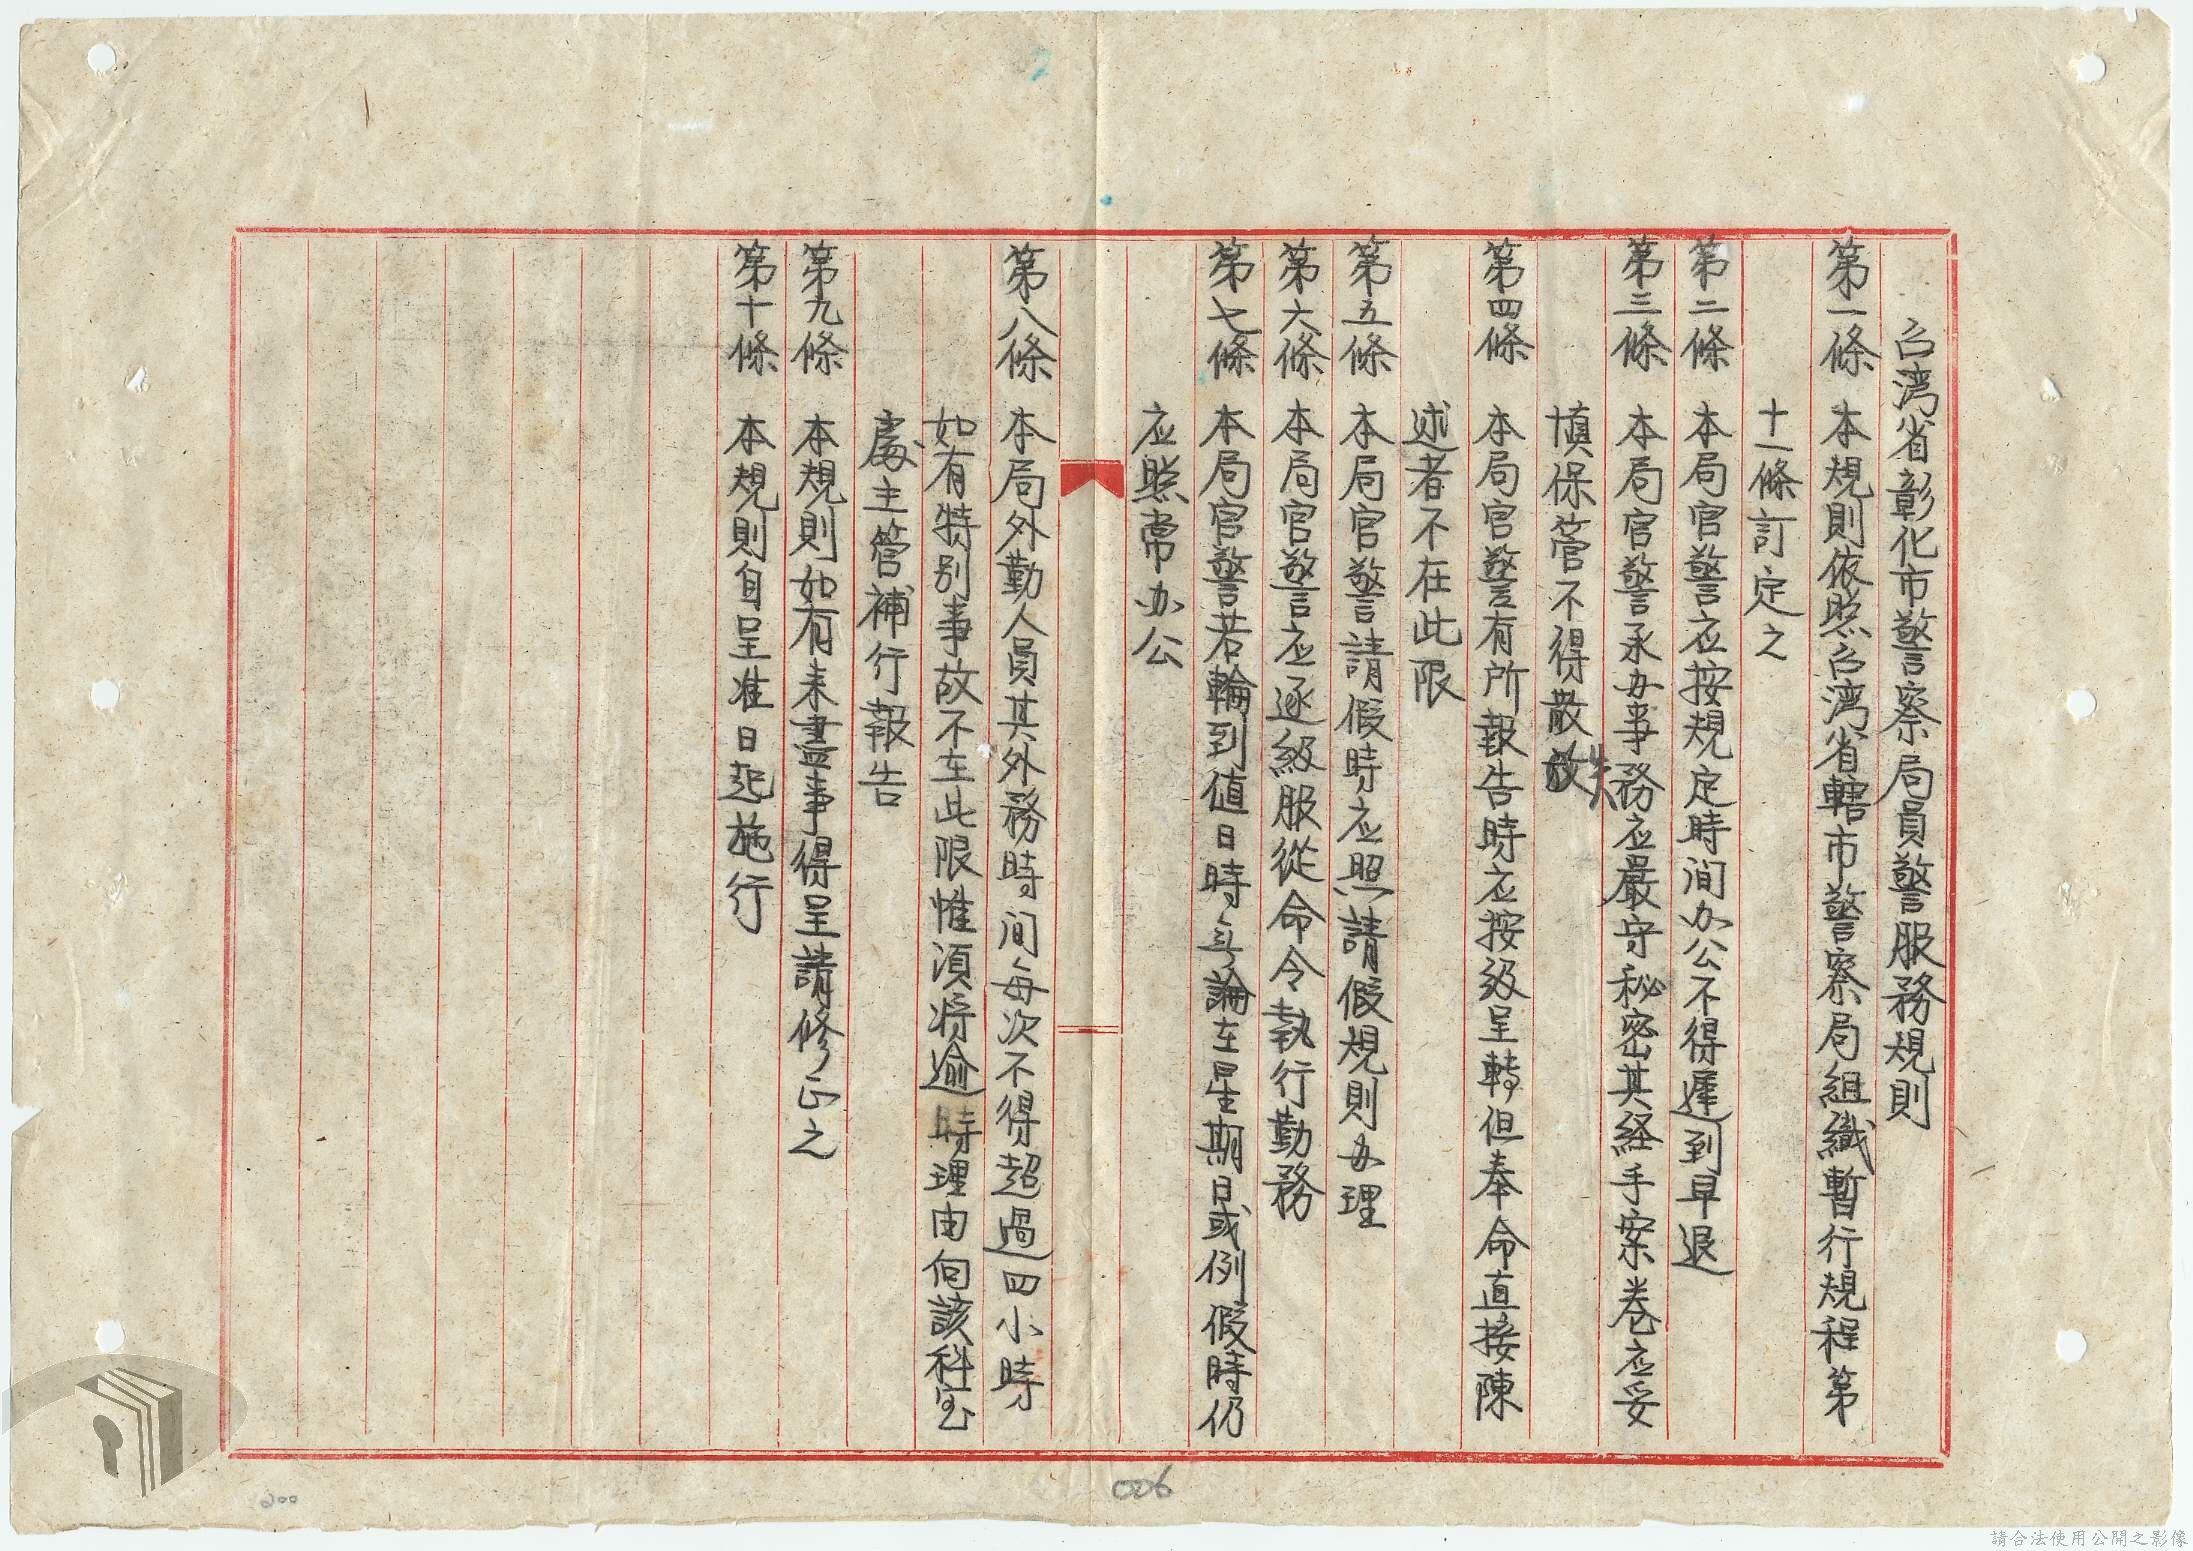 台湾省彰化市警察局員警服務規則
第一條　本規則依照台湾省轄市警察局組織暫行規程第
十一條訂定之
第二條　本局官警应按規定時间办公不得遲到早退
第三條　本局官警承办事務应嚴守秘密其経手案卷应妥
慎保管不得散失
第四條　本局官警有所報告時应按級呈轉但奉命直接陳
述者不在此限
第五條　本局官警請假時应照請假規則办理
第六條　本局官警应逐級服從命令執行勤務
第七條　本局官警若輪到值日時無論在星期日或例假時仍
应照常办公
第八條　本局外勤人員其外務時间每次不得超過四小時
如有特别事故不在此限惟須将逾時理由向該科室
處主管補行報告
第九條　本規則如有未盡事得呈請修正之
第十條　本規則自呈准日起施行
006
請合法使用公開之影像